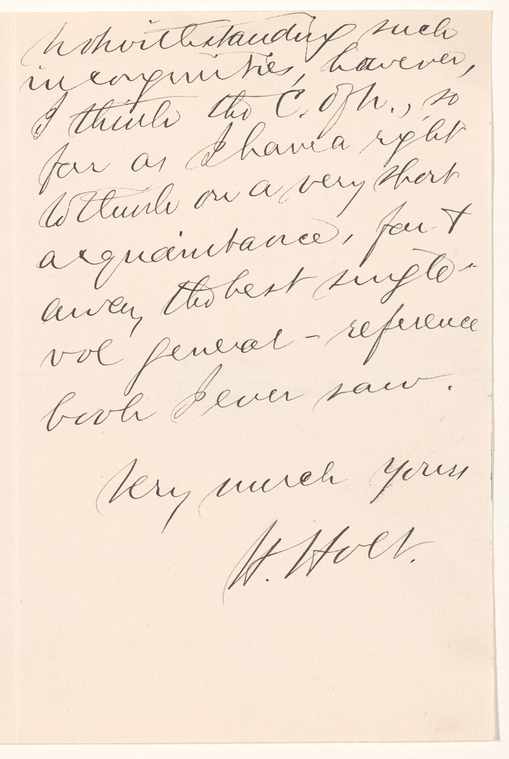 Notwithstanding such
incongruities, however,
I think the C. of K., so
far as I have a right
to think on a very short
acquaintance, far &
away the best single-
vol general-reference
book I ever saw.
Very much yours
H. Holt.